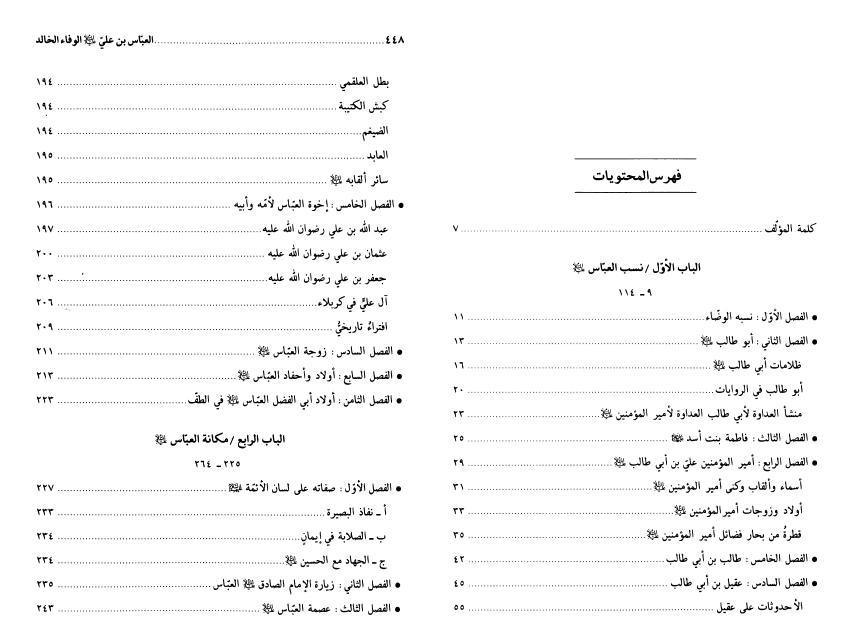 فهرس المحتويات
كلمة المؤلّف ٧
الباب الأوّل / نسب العبّاس ﷺ
٩ ـ ١١٤
● الفصل الأوّل : نسبه الوضّاء ١١
● الفصل الثاني : أبو طالب ﷺ ١٣
ظلامات أبي طالب ﷺ ١٦
أبو طالب في الروايات ٢٠
منشأ العداوة لأبي طالب العداوة لأمير المؤمنين ﷺ ٢٣
● الفصل الثالث : فاطمة بنت أسد ٢٥
● الفصل الرابع : أمير المؤمنين عليّ بن أبي طالب ﷺ ٢٩
أسماء وألقاب وكنى أمير المؤمنين ﷺ ٣١
أولاد وزوجات أمير المؤمنين ﷺ ٣٣
قطرةُ من بحار فضائل أمير المؤمنين ﷺ ٣٥
● الفصل الخامس : طالب بن أبي طالب ٤٢
● الفصل السادس : عقيل بن أبي طالب ٤٥
الأحدوثات على عقيل ٥٥
٤٤٨ العبّاس بن عليّ ﷺ الوفاء الخالد
بطل العلقمي ١٩٤
كبش الكتيبة ١٩٤
الضيغم ١٩٤
العابد ١٩٥
سائر ألقابه ﷺ ١٩٥
● الفصل الخامس : إخوة العبّاس لأمّه وأبيه ١٩٦
عبد الله بن علي رضوان الله عليه ١٩٧
عثمان بن علي رضوان الله عليه ٢٠٠
جعفر بن علي رضوان الله عليه ٢٠٣
آل عليٍّ في كربلاء ٢٠٦
افتراءٌ تاريخيٌّ ٢٠٩
● الفصل السادس : زوجة العبّاس ﷺ ٢١١
● الفصل السابع : أولاد وأحفاد العبّاس ﷺ ٢١٣
● الفصل الثامن : أولاد أبي الفضل العبّاس ﷺ في الطفّ ٢٢٣
الباب الرابع / مكانة العبّاس ﷺ
٢٢٥ ـ ٢٦٤
● الفصل الأوّل : صفاته على لسان الأئمّة ٢٢٧
أ ـ نفاذ البصيرة ٢٣٣
ب ـ الصلابة في إيمانٍ ٢٣٤
ج ـ الجهاد مع الحسين ﷺ ٢٣٤
● الفصل الثاني : زيارة الإمام الصادق ﷺ العبّاس ٢٣٥
● الفصل الثالث : عصمة العبّاس ﷺ ٢٤٣